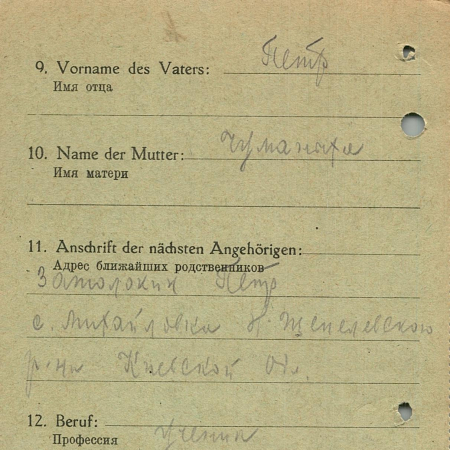 9. Vorname des Vaters: Петр
Имя отца
10. Name der Mutter:
Имя матери
11. Anschrift der nächsten Angehörigen:
Адрес ближайших родственников
Петр
с. Михайловка
р-на Киевской Обл.
12. Beruf:
Профессия